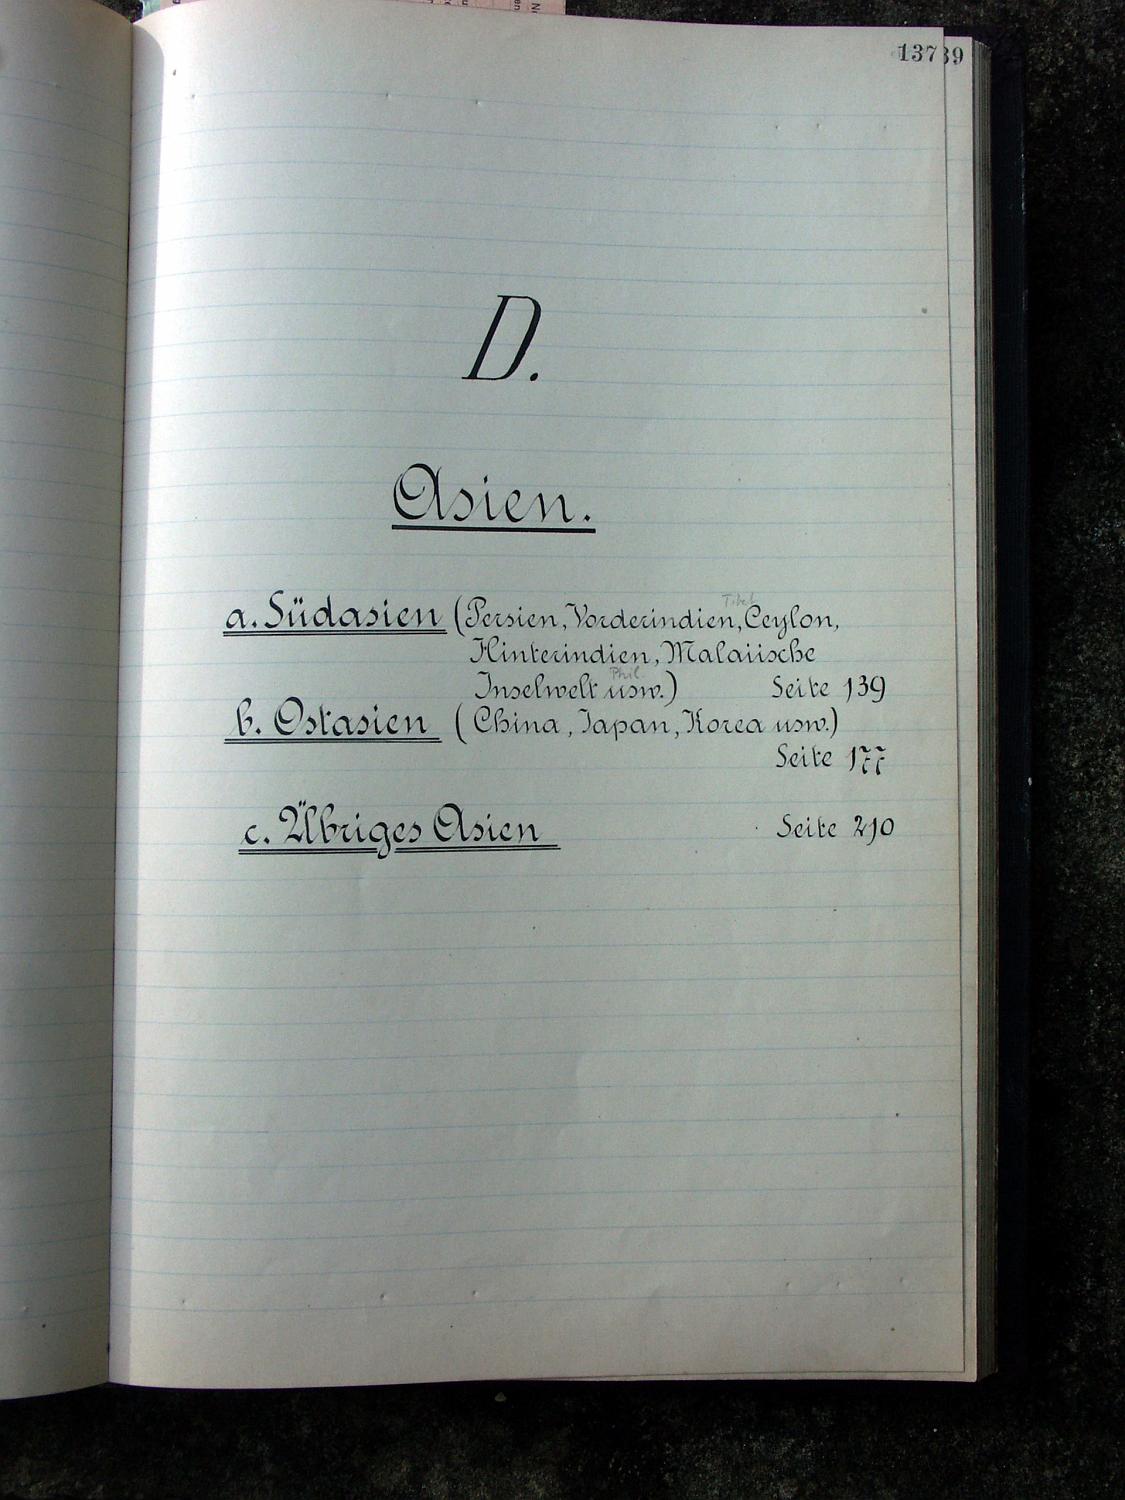 137
39
D.
Asien.
a. Südasien (Persien, Vorderindien, Tibet Ceylon,
Hinterindien, Malaiische
Inselwelt Phil. usw.) Seite 139
b. Ostasien (China, Japan, Korea usw.)
Seite 177
c. Übriges Asien Seite 210